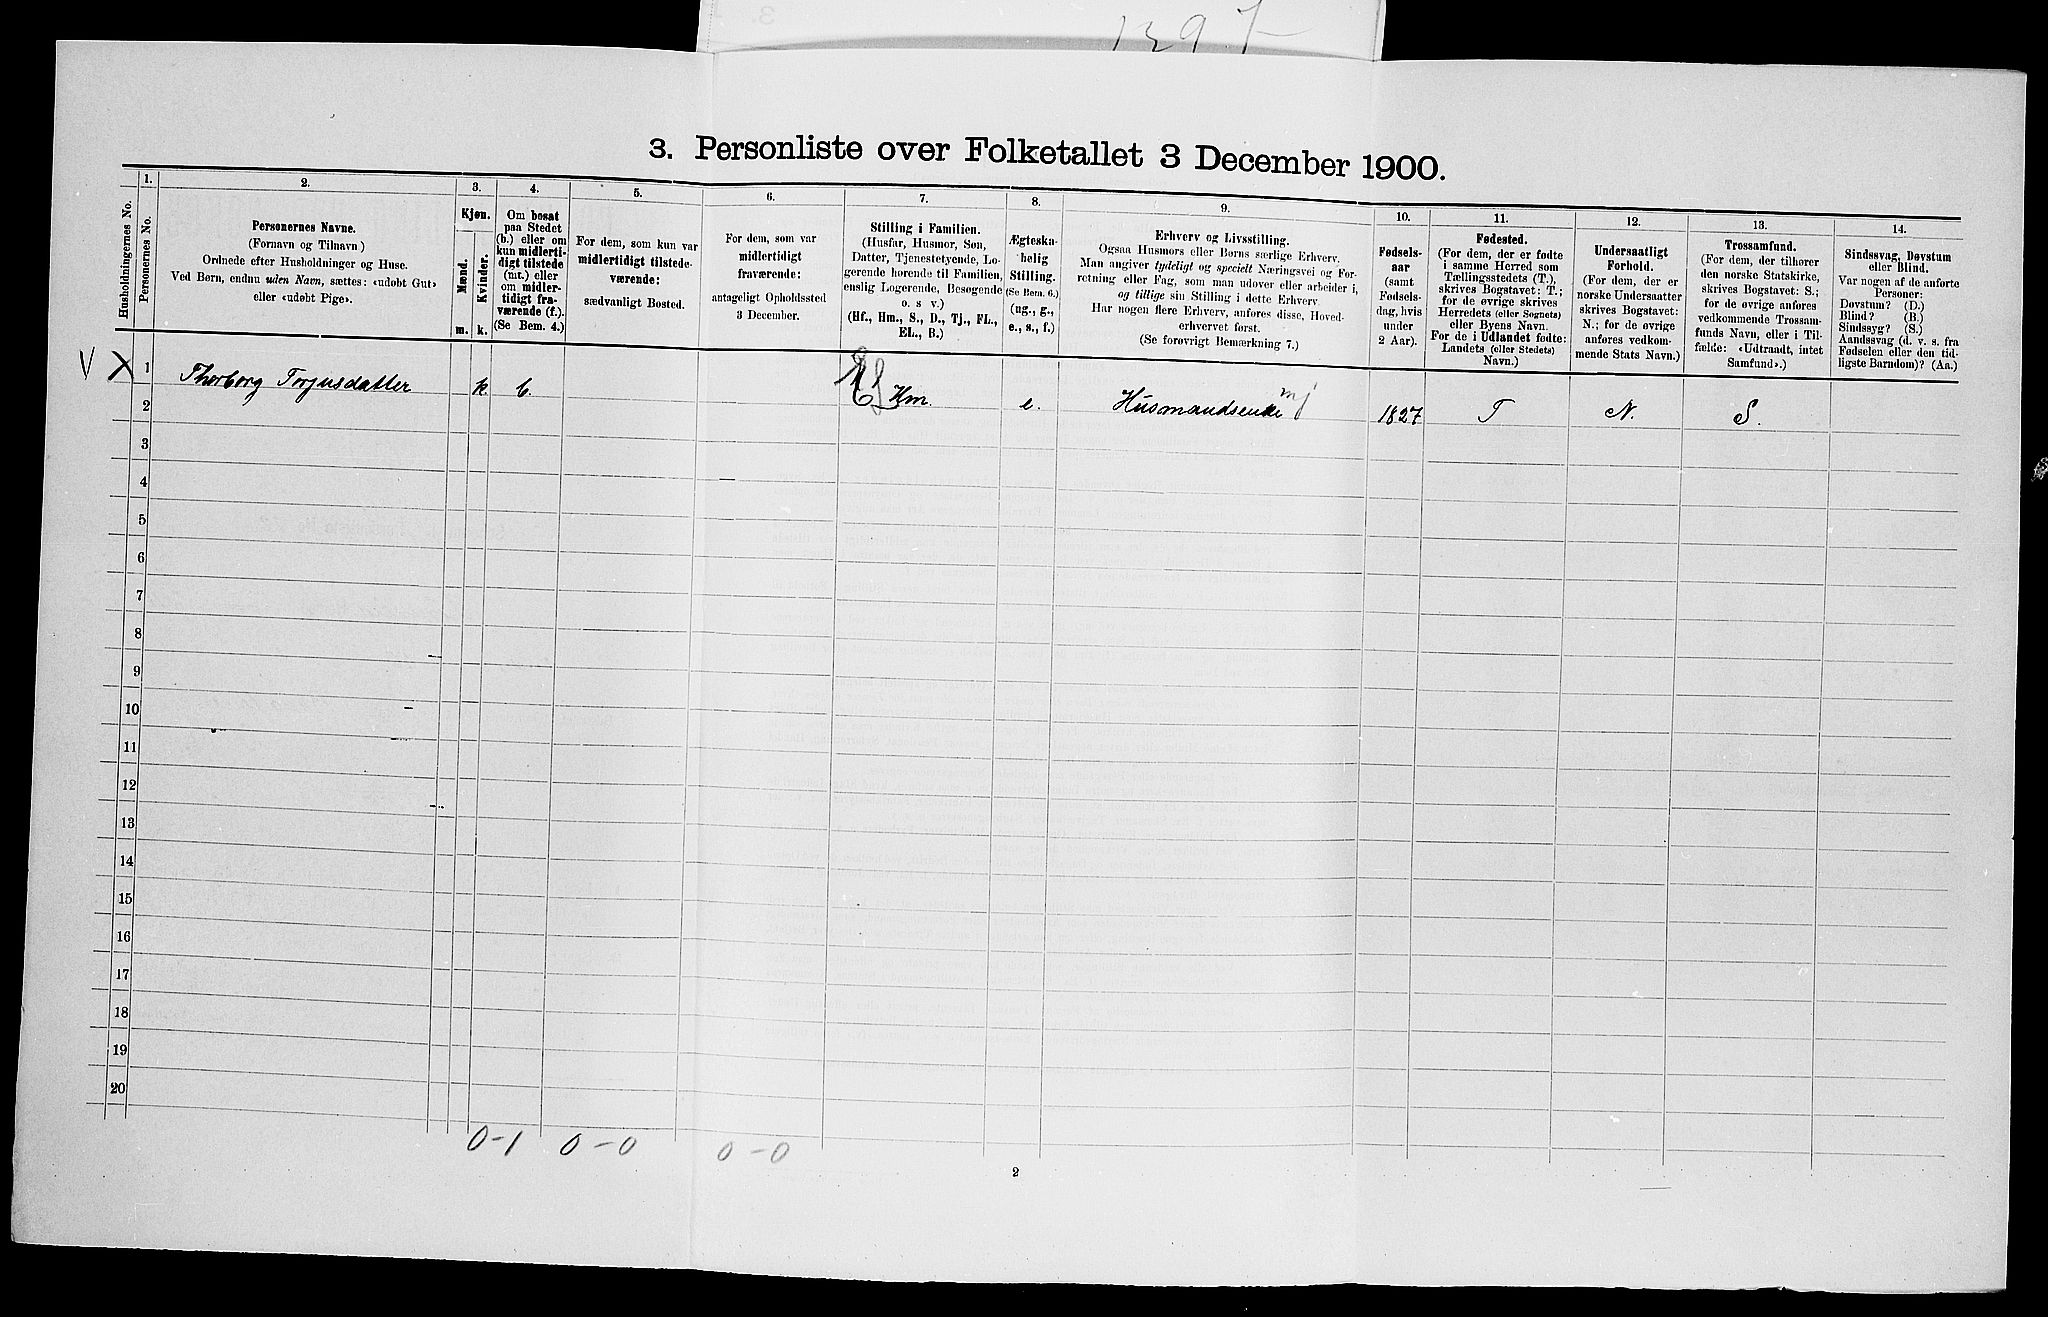 1397
3. Personliste over Folketallet 3 December 1900.
Husholdningernes No.
1.
Personernes No.
2.
Personernes Navne.
(Fornavn og Tilnavn.)
Ordnede efter Husholdninger og Huse.
Ved Børn, endnu uden Navn, sættes: «udøbt Gut»
eller «udøbt Pige».
3.
Kjøn.
Mænd.
Kvinder.
m.
k.
4.
Om bosat
paa Stedet
(b.) eller om
kun midlerti-
digt tilstede
(mt.) eller
om midler-
tidigt fra-
værende (f.).
(Se Bem. 4.)
5.
For dem, som kun var
midlertidigt tilstede-
værende:
sædvanligt Bosted.
6.
For dem, som var
midlertidigt
fraværende:
antageligt Opholdssted
3 December.
7.
Stilling i Familien.
(Husfar, Husmor, Søn,
Datter, Tjenestetyende, Lo-
gerende hørende til Familien,
enslig Logerende, Besøgende
o. s v.)
(Hf., Hm., S., D., Tj., FL.,
EL., B.)
8.
Ægteska-
belig
Stilling.
(Se Bem. 6.)
(ug., g.,
e., s., f.)
9.
Erhverv og Livsstilling.
Ogsaa Husmors eller Børns særlige Erhverv.
Man angiver tydeligt og specielt Næringsvei og For-
retning eller Fag, som man udover eller arbeider i,
og tillige sin Stilling i dette Erhverv.
Har nogen flere Erhverv, anføres disse, Hoved-
erhvervet først.
(Se forøvrigt Bemærkning 7.)
10.
Fødsels-
aar
(samt
Fødsels-
dag, hvis
under
2 Aar).
11.
Fødested.
(For dem, der er fødte
i samme Herred som
Tællingsstedets (T.),
skrives Bogstavet: T.;
for de øvrige skrives
Herredets (eller Sognets)
eller Byens Navn.
For de i Udlandet fødte:
Landets (eller Stedets)
Navn.)
12.
Undersaatligt
Forhold.
(For dem, der er
norske Undersaatter
skrives Bogstavet:
N.; for de øvrige
anføres vedkom-
mende Stats Navn.)
13.
Trossamfund.
(For dem, der tilhører
den norske Statskirke,
skrives Bogstavet: S.;
for de øvrige anføres
vedkommende Trossam-
funds Navn, eller i Til-
fælde: «Udtraadt, intet
Samfund».)
14.
Sindssvag, Døvstum
eller Blind.
Var nogen af de anførte
Personer:
Døvstum? (D.)
Blind? (B.)
Sindssyg? (S.)
Aandssvag (d. v. s. fra
Fødselen eller den tid-
ligste Barndom)? (Aa.)
V X 1 Thorborg Torjusdatter k. b. EL Hm. e. Husmandsenke mj 1827 T N. S.
2
3
4
5
6
7
8
9
10
11
12
13
14
15
16
17
18
19
20
0-1 0-0 0-0
2